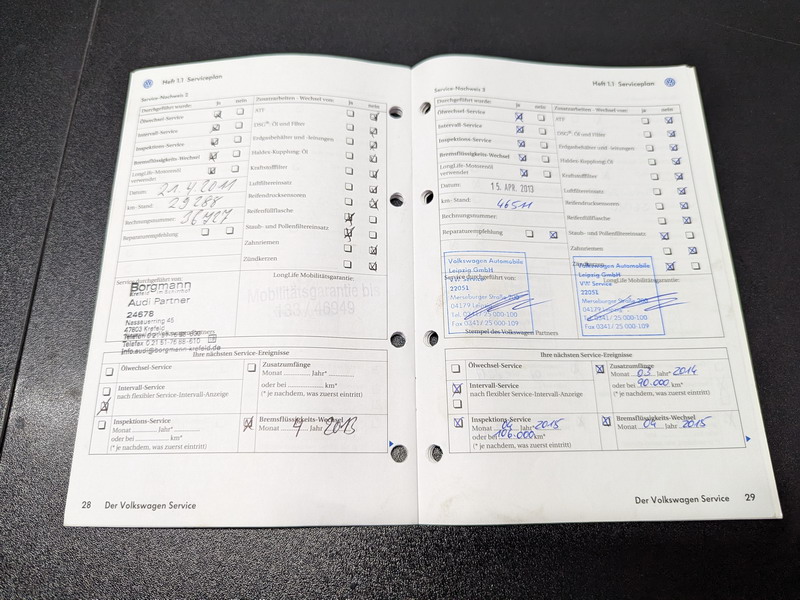 Heft 1.1 Serviceplan
Service-Nachweis 2
Durchgeführt wurde: ja nein
Ölwechsel-Service
Intervall-Service
Inspektions-Service
Bremsflüssigkeits-Wechsel
LongLife-Motorenöl
verwendet
Datum: 21.4.2011
km-Stand: 29288
Rechnungsnummer: 36727
Reparaturempfehlung
Zusatzarbeiten - Wechsel von: ja nein
ATF
DSG®-Öl und Filter
Erdgasbehälter und -leitungen
Haldex-Kupplung: Öl
Kraftstofffilter
Luftfiltereinsatz
Reifendrucksensoren
Reifenfüllflasche
Staub- und Pollenfiltereinsatz
Zahnriemen
Zündkerzen
Service durchgeführt von:
Borgmann
Audi Partner
24678
Nassauerring 45
47803 Krefeld
info.audi@borgmann-krefeld.de
LongLife Mobilitätsgarantie:
Mobilitätsgarantie bis
Ihre nächsten Service-Ereignisse
Ölwechsel-Service
Zusatzumfänge
Monat Jahr*
oder bei km*
(* je nachdem, was zuerst eintritt)
Intervall-Service
nach flexibler Service-Intervall-Anzeige
Inspektions-Service
Monat Jahr*
oder bei km*
(* je nachdem, was zuerst eintritt)
Bremsflüssigkeits-Wechsel
Monat 4 Jahr 2013
28 Der Volkswagen Service
Heft 1.1 Serviceplan
Service-Nachweis 3
Durchgeführt wurde: ja nein
Ölwechsel-Service
Intervall-Service
Inspektions-Service
Bremsflüssigkeits-Wechsel
LongLife-Motorenöl
verwendet
Datum: 15. APR. 2013
km-Stand: 46511
Rechnungsnummer:
Reparaturempfehlung
Zusatzarbeiten - Wechsel von: ja nein
ATF
DSG®-Öl und Filter
Erdgasbehälter und -leitungen
Haldex-Kupplung: Öl
Kraftstofffilter
Luftfiltereinsatz
Reifendrucksensoren
Reifenfüllflasche
Staub- und Pollenfiltereinsatz
Zahnriemen
Zündkerzen
Volkswagen Automobile
Leipzig GmbH
Service durchgeführt von:
VW Service
22051
Merseburger Straße 200
04179 Leipzig
Tel. 0341/ 25 000-100
Fax 0341/ 25 000-109
Stempel des Volkswagen Partners
LongLife Mobilitätsgarantie:
Volkswagen Automobile
Leipzig GmbH
VW Service
22051
Merseburger Straße 200
04179 Leipzig
Tel. 0341/ 25 000-100
Fax 0341/ 25 000-109
Ihre nächsten Service-Ereignisse
Ölwechsel-Service
Zusatzumfänge
Monat 03 Jahr* 2014
oder bei 90.000 km*
(* je nachdem, was zuerst eintritt)
Intervall-Service
nach flexibler Service-Intervall-Anzeige
Inspektions-Service
Monat 04 Jahr* 2015
oder bei 106.000 km*
(* je nachdem, was zuerst eintritt)
Bremsflüssigkeits-Wechsel
Monat 04 Jahr 2015
Der Volkswagen Service 29